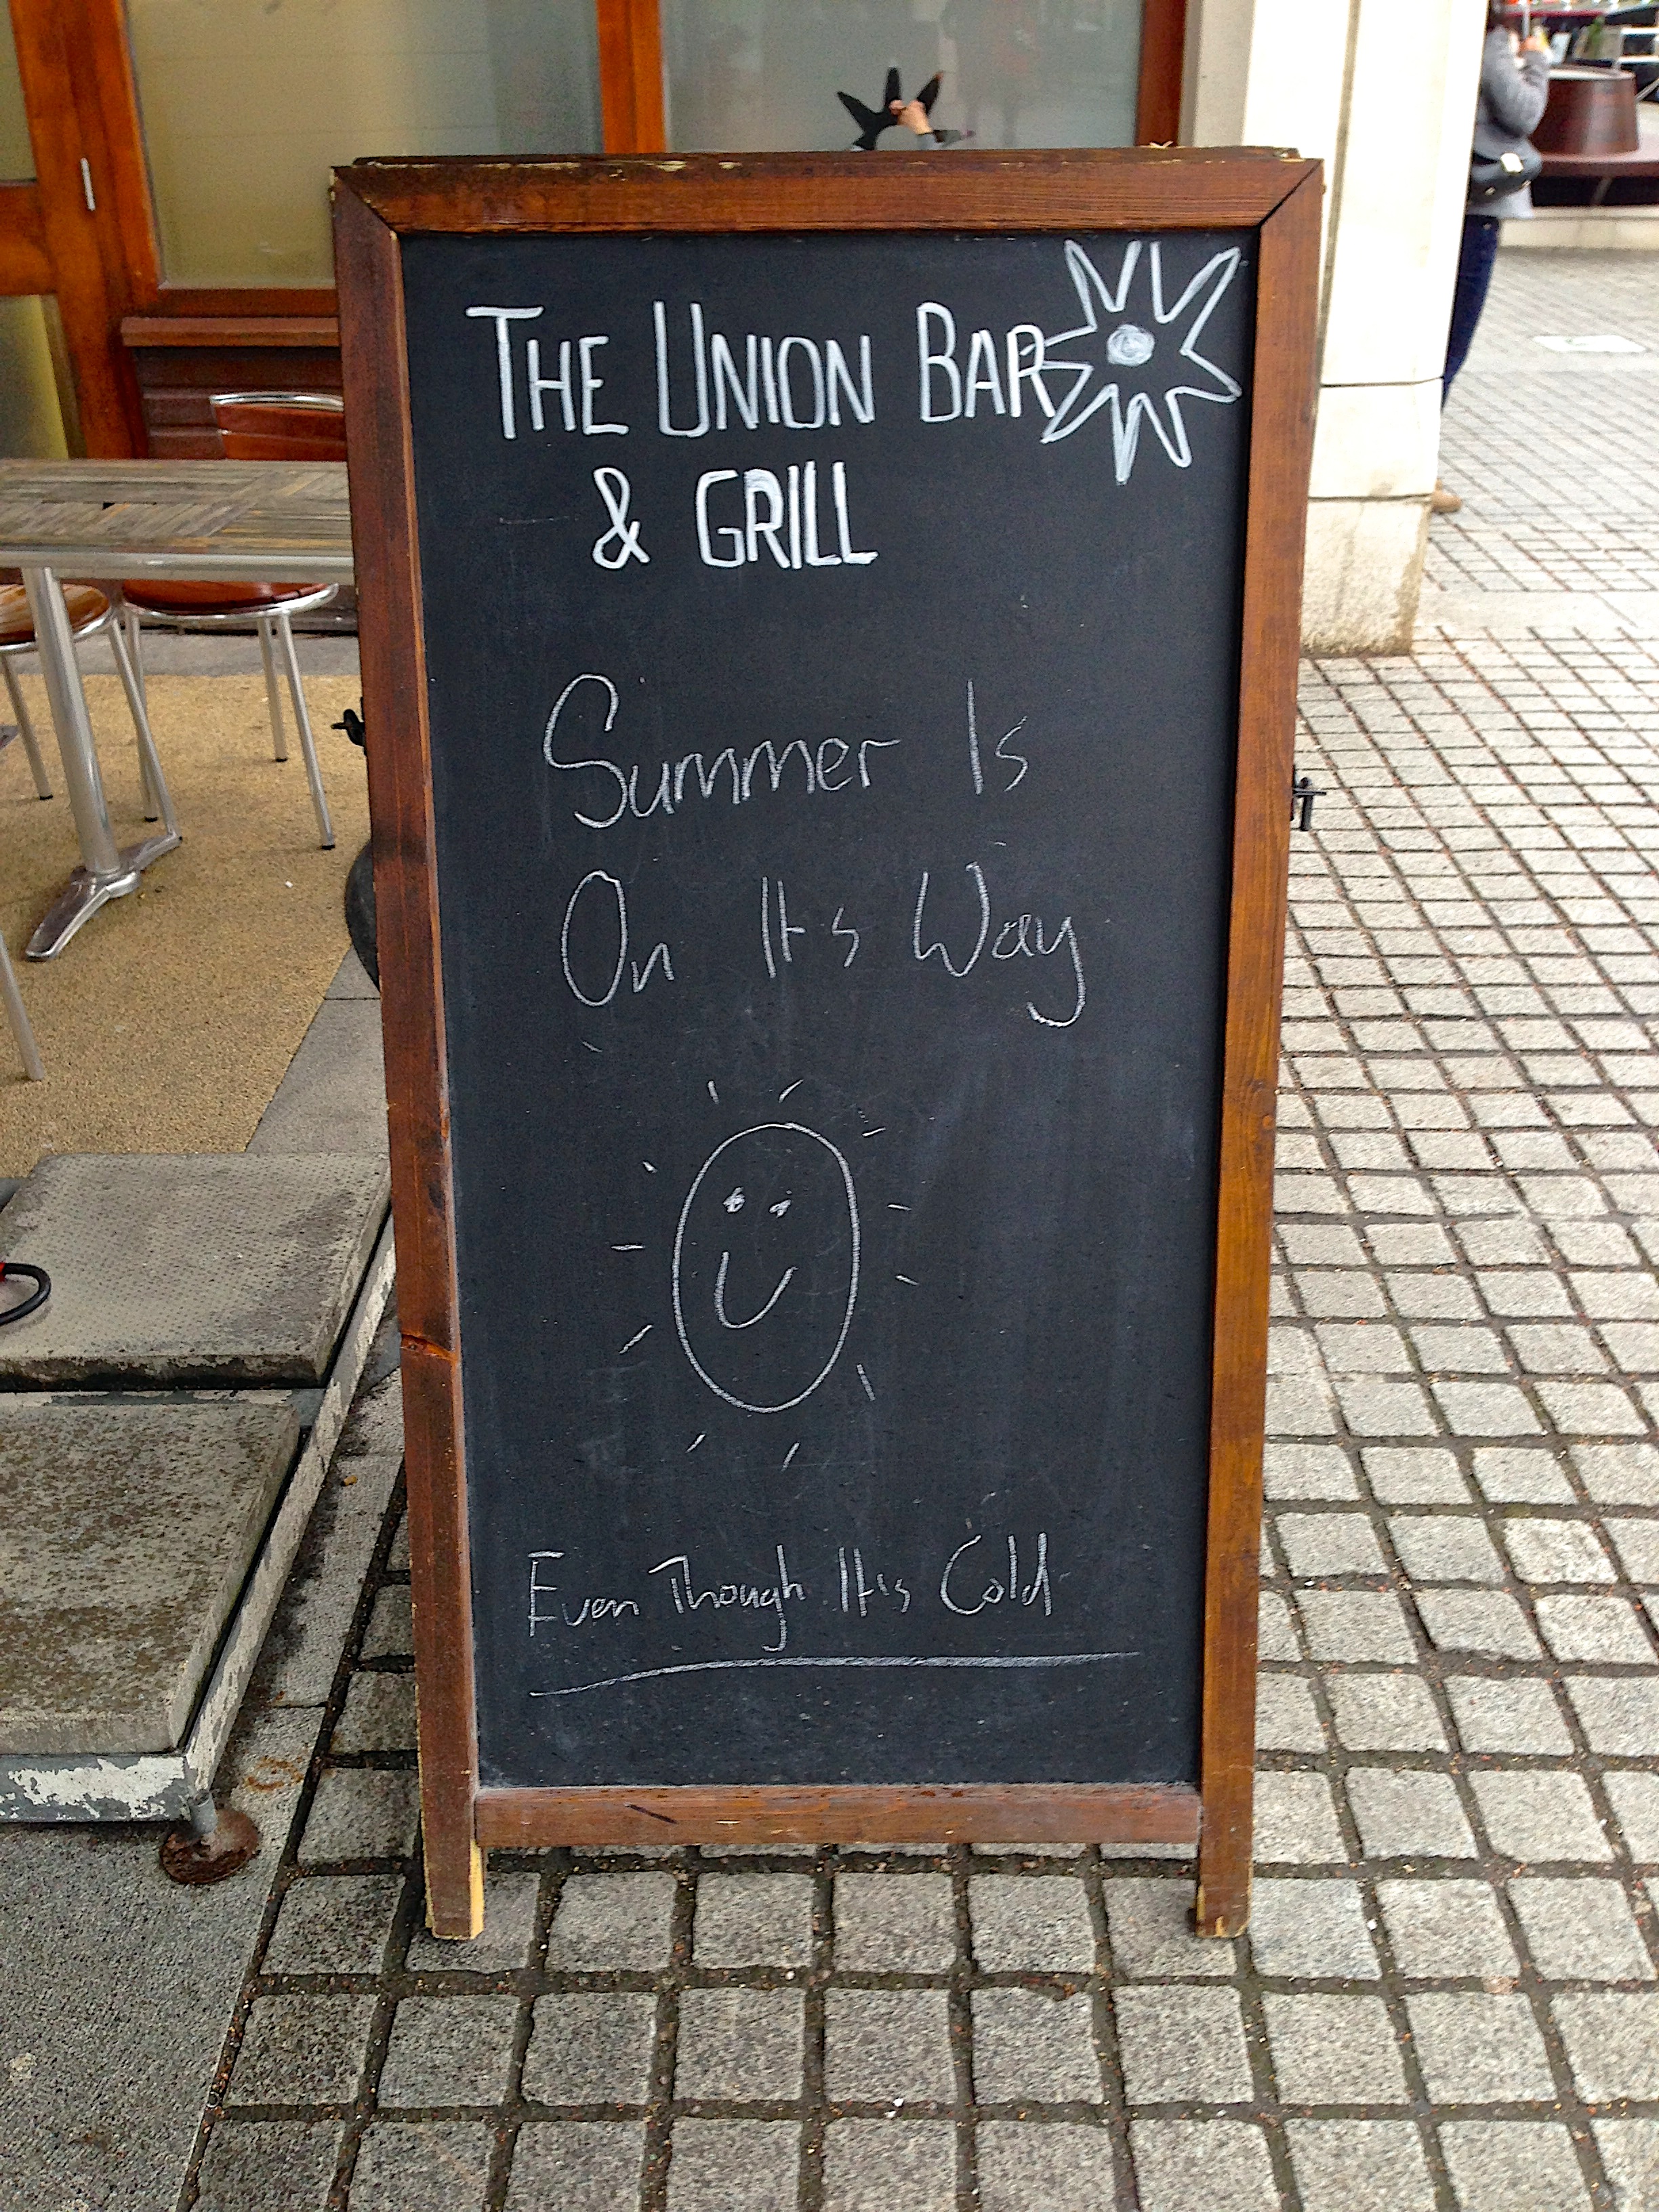 THE UNION BAR
& GRILL
Summer Is
On Its Way
Even Though It's Cold